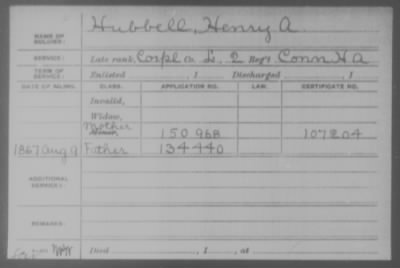 NAME OF SOLDIER: Hubbell, Henry A.
SERVICE: Late rank, Corpl Co. L, 2 Reg't Conn H A
TERM OF SERVICE: Enlisted , 1 Discharged , 1
DATE OF FILING. CLASS. APPLICATION NO. LAW. CERTIFICATE NO.
Invalid,
Widow,
Mother
Minor, 150 968 107204
1867 Aug 9 Father 134 440
ADDITIONAL SERVICE:
REMARKS:
Died , 1 , at